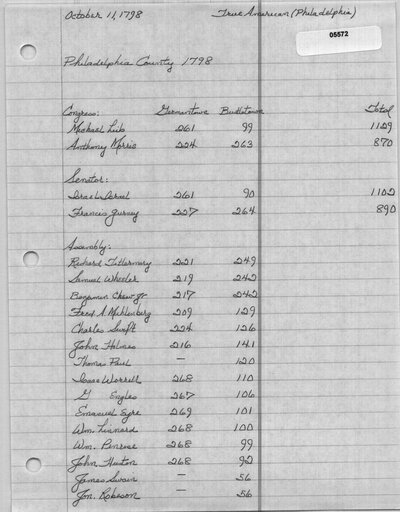 October 11, 1798 True American (Philadelphia)
05572
Philadelphia County 1798
Congress: Germantown Bustletown Total
Michael Leib 261 99 1129
Anthony Morris 224 263 870
Senator:
Israel Israel 261 90 1102
Francis Gurney 227 264 890
Assembly:
Richard Tittermary 221 249
Samuel Wheeler 219 242
Benjamin Chew Jr 217 242
Fred A. Muhlenberg 209 129
Charles Swift 224 126
John Holmes 216 141
Thomas Paul — 120
Isaac Worrell 268 110
G Engles 267 106
Emanuel Eyre 269 101
Wm. Linnard 268 100
Wm. Penrose 268 99
John Huston 268 92
James Swain — 56
Jon. Robeson — 56